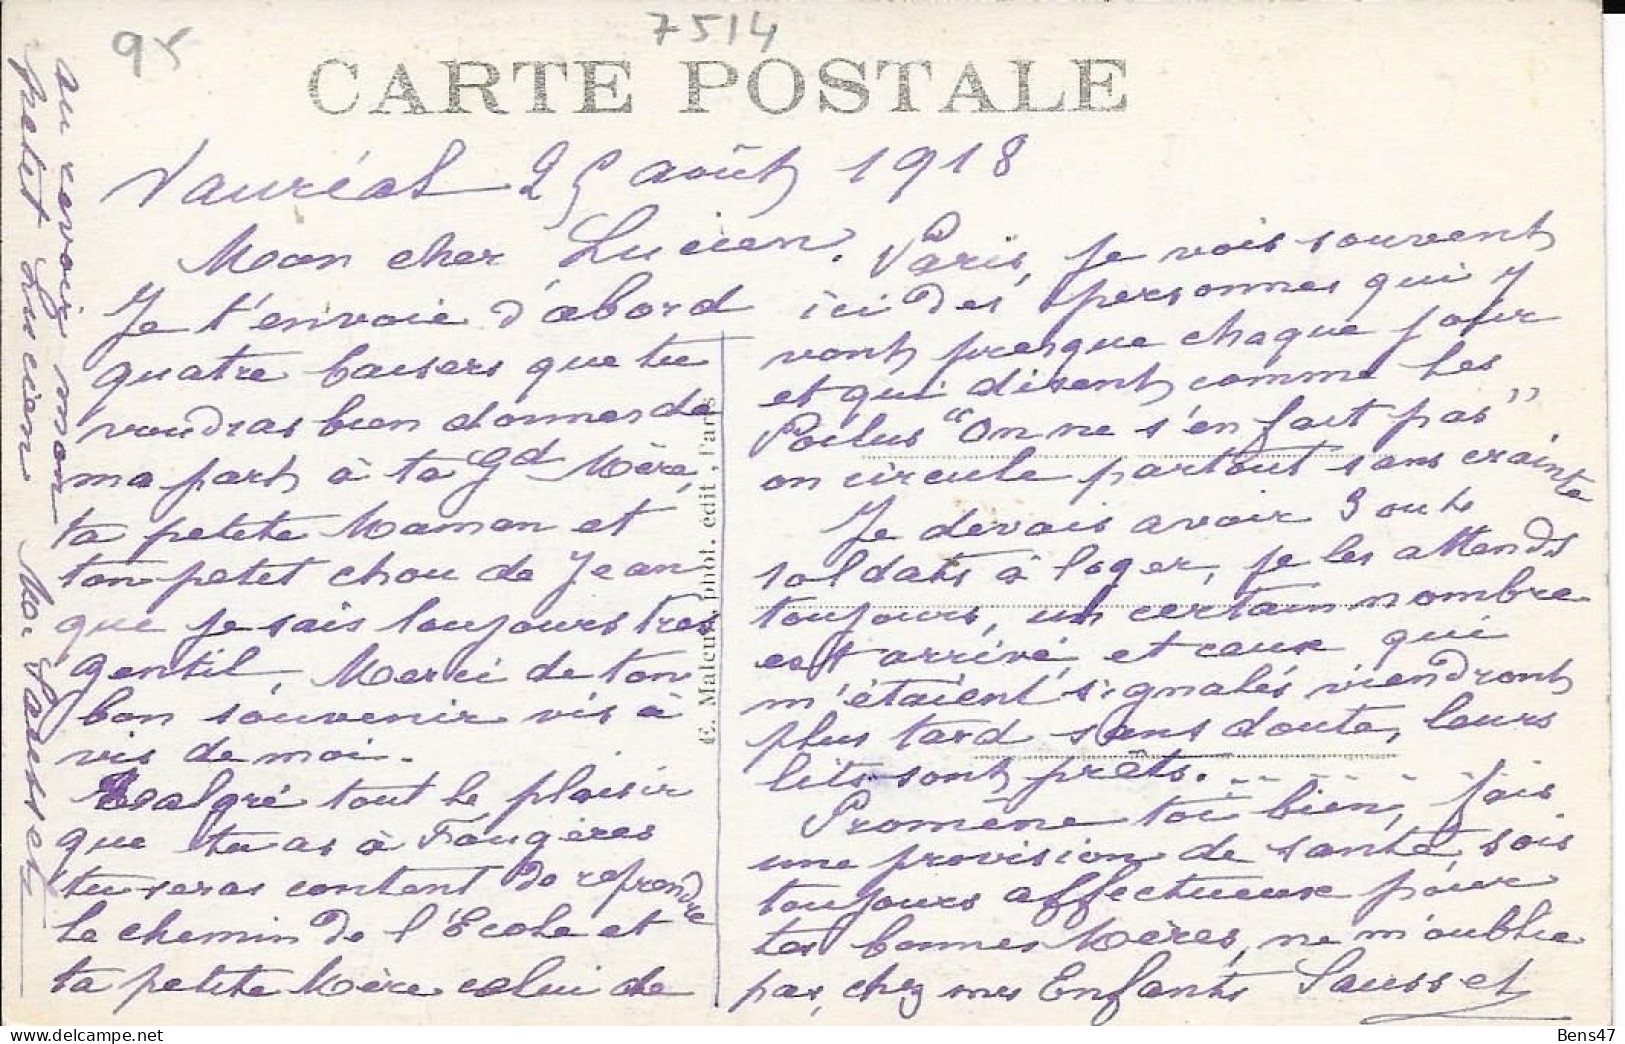 95
7514
CARTE POSTALE
Vauréal 25 août 1918
Mon cher Lucien.
Je t'envoie d'abord
quatre baisers que tu
voudras bien donner de
ma part à ta Gd Mère,
ta petite Maman et
ton petit chou de Jean
que je sais toujours très
gentil, Merci de ton
bon souvenir vis à
vis de moi.
Malgré tout le plaisir
que tu as à Fougères
tu seras content de reprendre
le chemin de l'Ecole et
ta petite Mère celui de
Paris, je vois souvent
ici des personnes qui y
vont presque chaque jour
et qui disent comme les
Poilus "On ne s'en fait pas"
on circule partout sans crainte
Je devais avoir 3 outs
soldats à loger, je les attends
toujours, un certain nombre
est arrivé et ceux qui
m'étaient signalés viendront
plus tard sans doute, leurs
lits sont prêts.
Promène toi bien, fais
une provision de santé, sois
toujours affectueux pour
tes bonnes Mères, ne m'oublie
pas, chez mes Enfants Sausset
au revoir mon
petit Lucien M. Sausset
E. Malcuit, phot. édit, Paris
Bens47